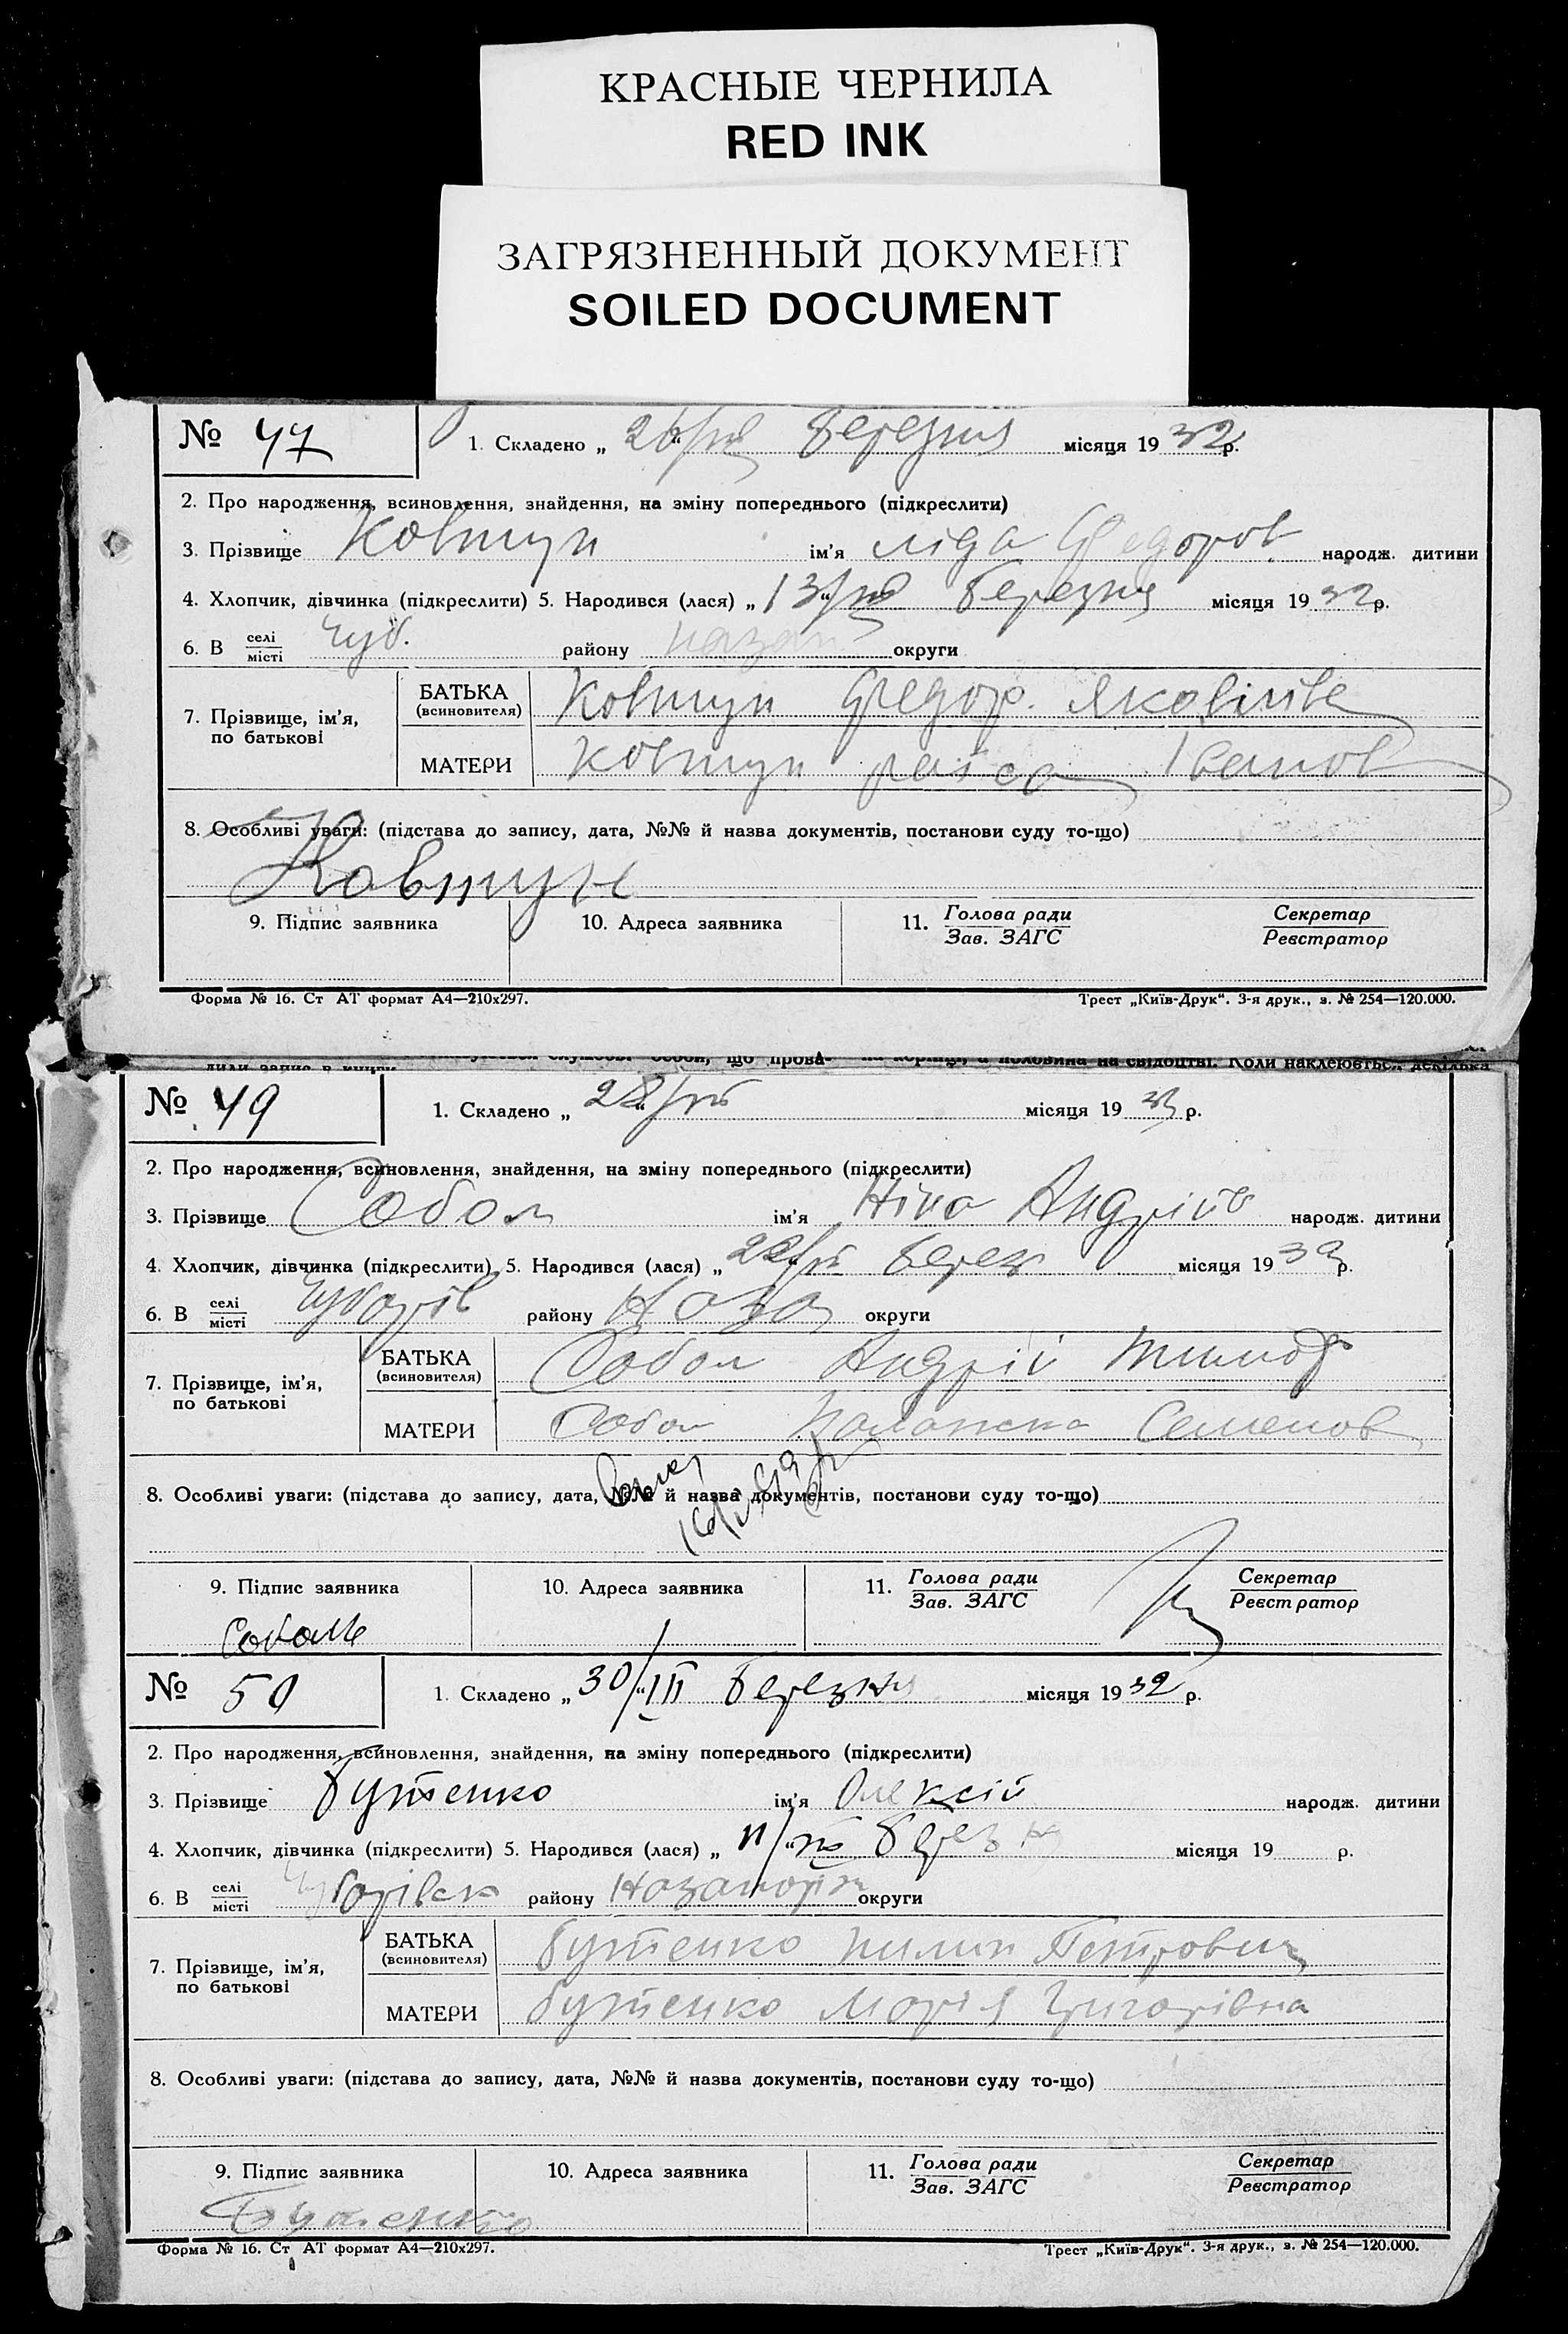 КРАСНЫЕ ЧЕРНИЛА
RED INK
ЗАГРЯЗНЕННЫЙ ДОКУМЕНТ
SOILED DOCUMENT
№ 47
1. Складено „ 26/III березня місяця 19 32 р.
2. Про народження, всиновлення, знайдення, на зміну попереднього (підкреслити)
3. Прізвище Ковтун ім'я Ліда Федоров народж. дитини
4. Хлопчик, дівчинка (підкреслити) 5. Народився (лася) „ 13/III березня місяця 19 32 р.
6. В селі місті Чуб. району Назар округи
7. Прізвище, ім'я, по батькові
БАТЬКА (всиновителя) Ковтун Федор.
МАТЕРИ Ковтун раїса Іванов
8. Особливі уваги: (підстава до запису, дата, №№ й назва документів, постанови суду то-що)
Ковтун
9. Підпис заявника 10. Адреса заявника 11. Голова ради Зав. ЗАГС Секретар Реєстратор
Форма № 16. Ст АТ формат А4—210х297. Трест „Київ-Друк“. 3-я друк., з. № 254—120.000.
№ 49
1. Складено „ 28/III місяця 19 32 р.
2. Про народження, всиновлення, знайдення, на зміну попереднього (підкреслити)
3. Прізвище Собол ім'я Ніна Андріїв народж. дитини
4. Хлопчик, дівчинка (підкреслити) 5. Народився (лася) „ березн місяця 19 32 р.
6. В селі місті Чубарів району Наза округи
7. Прізвище, ім'я, по батькові
БАТЬКА (всиновителя) Собол Андрій Тимоф
МАТЕРИ Собол Палажка Семенов
8. Особливі уваги: (підстава до запису, дата, №№ й назва документів, постанови суду то-що)
9. Підпис заявника 10. Адреса заявника 11. Голова ради Зав. ЗАГС Секретар Реєстратор
Соболь
№ 50
1. Складено „ 30/“III березня місяця 19 32 р.
2. Про народження, всиновлення, знайдення, на зміну попереднього (підкреслити)
3. Прізвище Бутенко ім'я Олексій народж. дитини
4. Хлопчик, дівчинка (підкреслити) 5. Народився (лася) „ 11/“III березня місяця 19 р.
6. В селі місті району округи
7. Прізвище, ім'я, по батькові
БАТЬКА (всиновителя) Бутенко пилип Петрович
МАТЕРИ Бутенко Марія Григорівна
8. Особливі уваги: (підстава до запису, дата, №№ й назва документів, постанови суду то-що)
9. Підпис заявника 10. Адреса заявника 11. Голова ради Зав. ЗАГС Секретар Реєстратор
Бутенко
Форма № 16. Ст АТ формат А4—210х297. Трест „Київ-Друк“. 3-я друк., з. № 254—120.000.